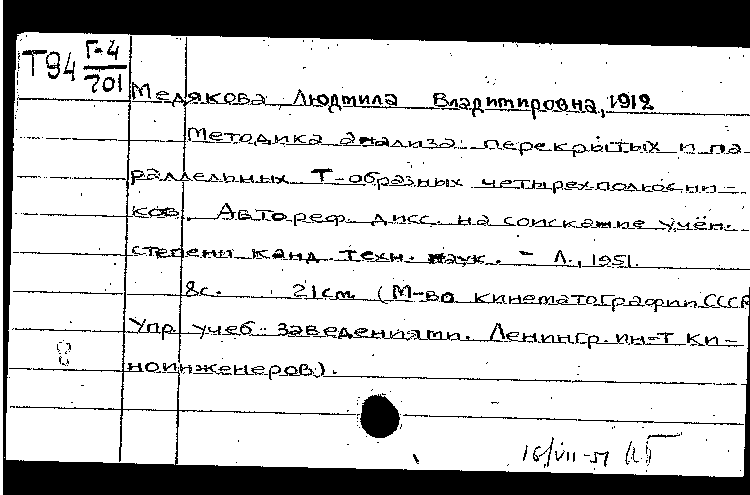 Т94 Г-4/701
Медякова Людмила Владимировна, 1912
Методика анализа перекрытых и па-
раллельных Т-образных четырехполюсни-
ков. Автореф. дисс. на соискание учён.
степени канд. техн. наук. - Л., 1951.
8с. 21см. (М-во кинематографии СССР
Упр учеб. заведениями. Ленингр. ин-т ки-
ноинженеров).
8
16/VII-51